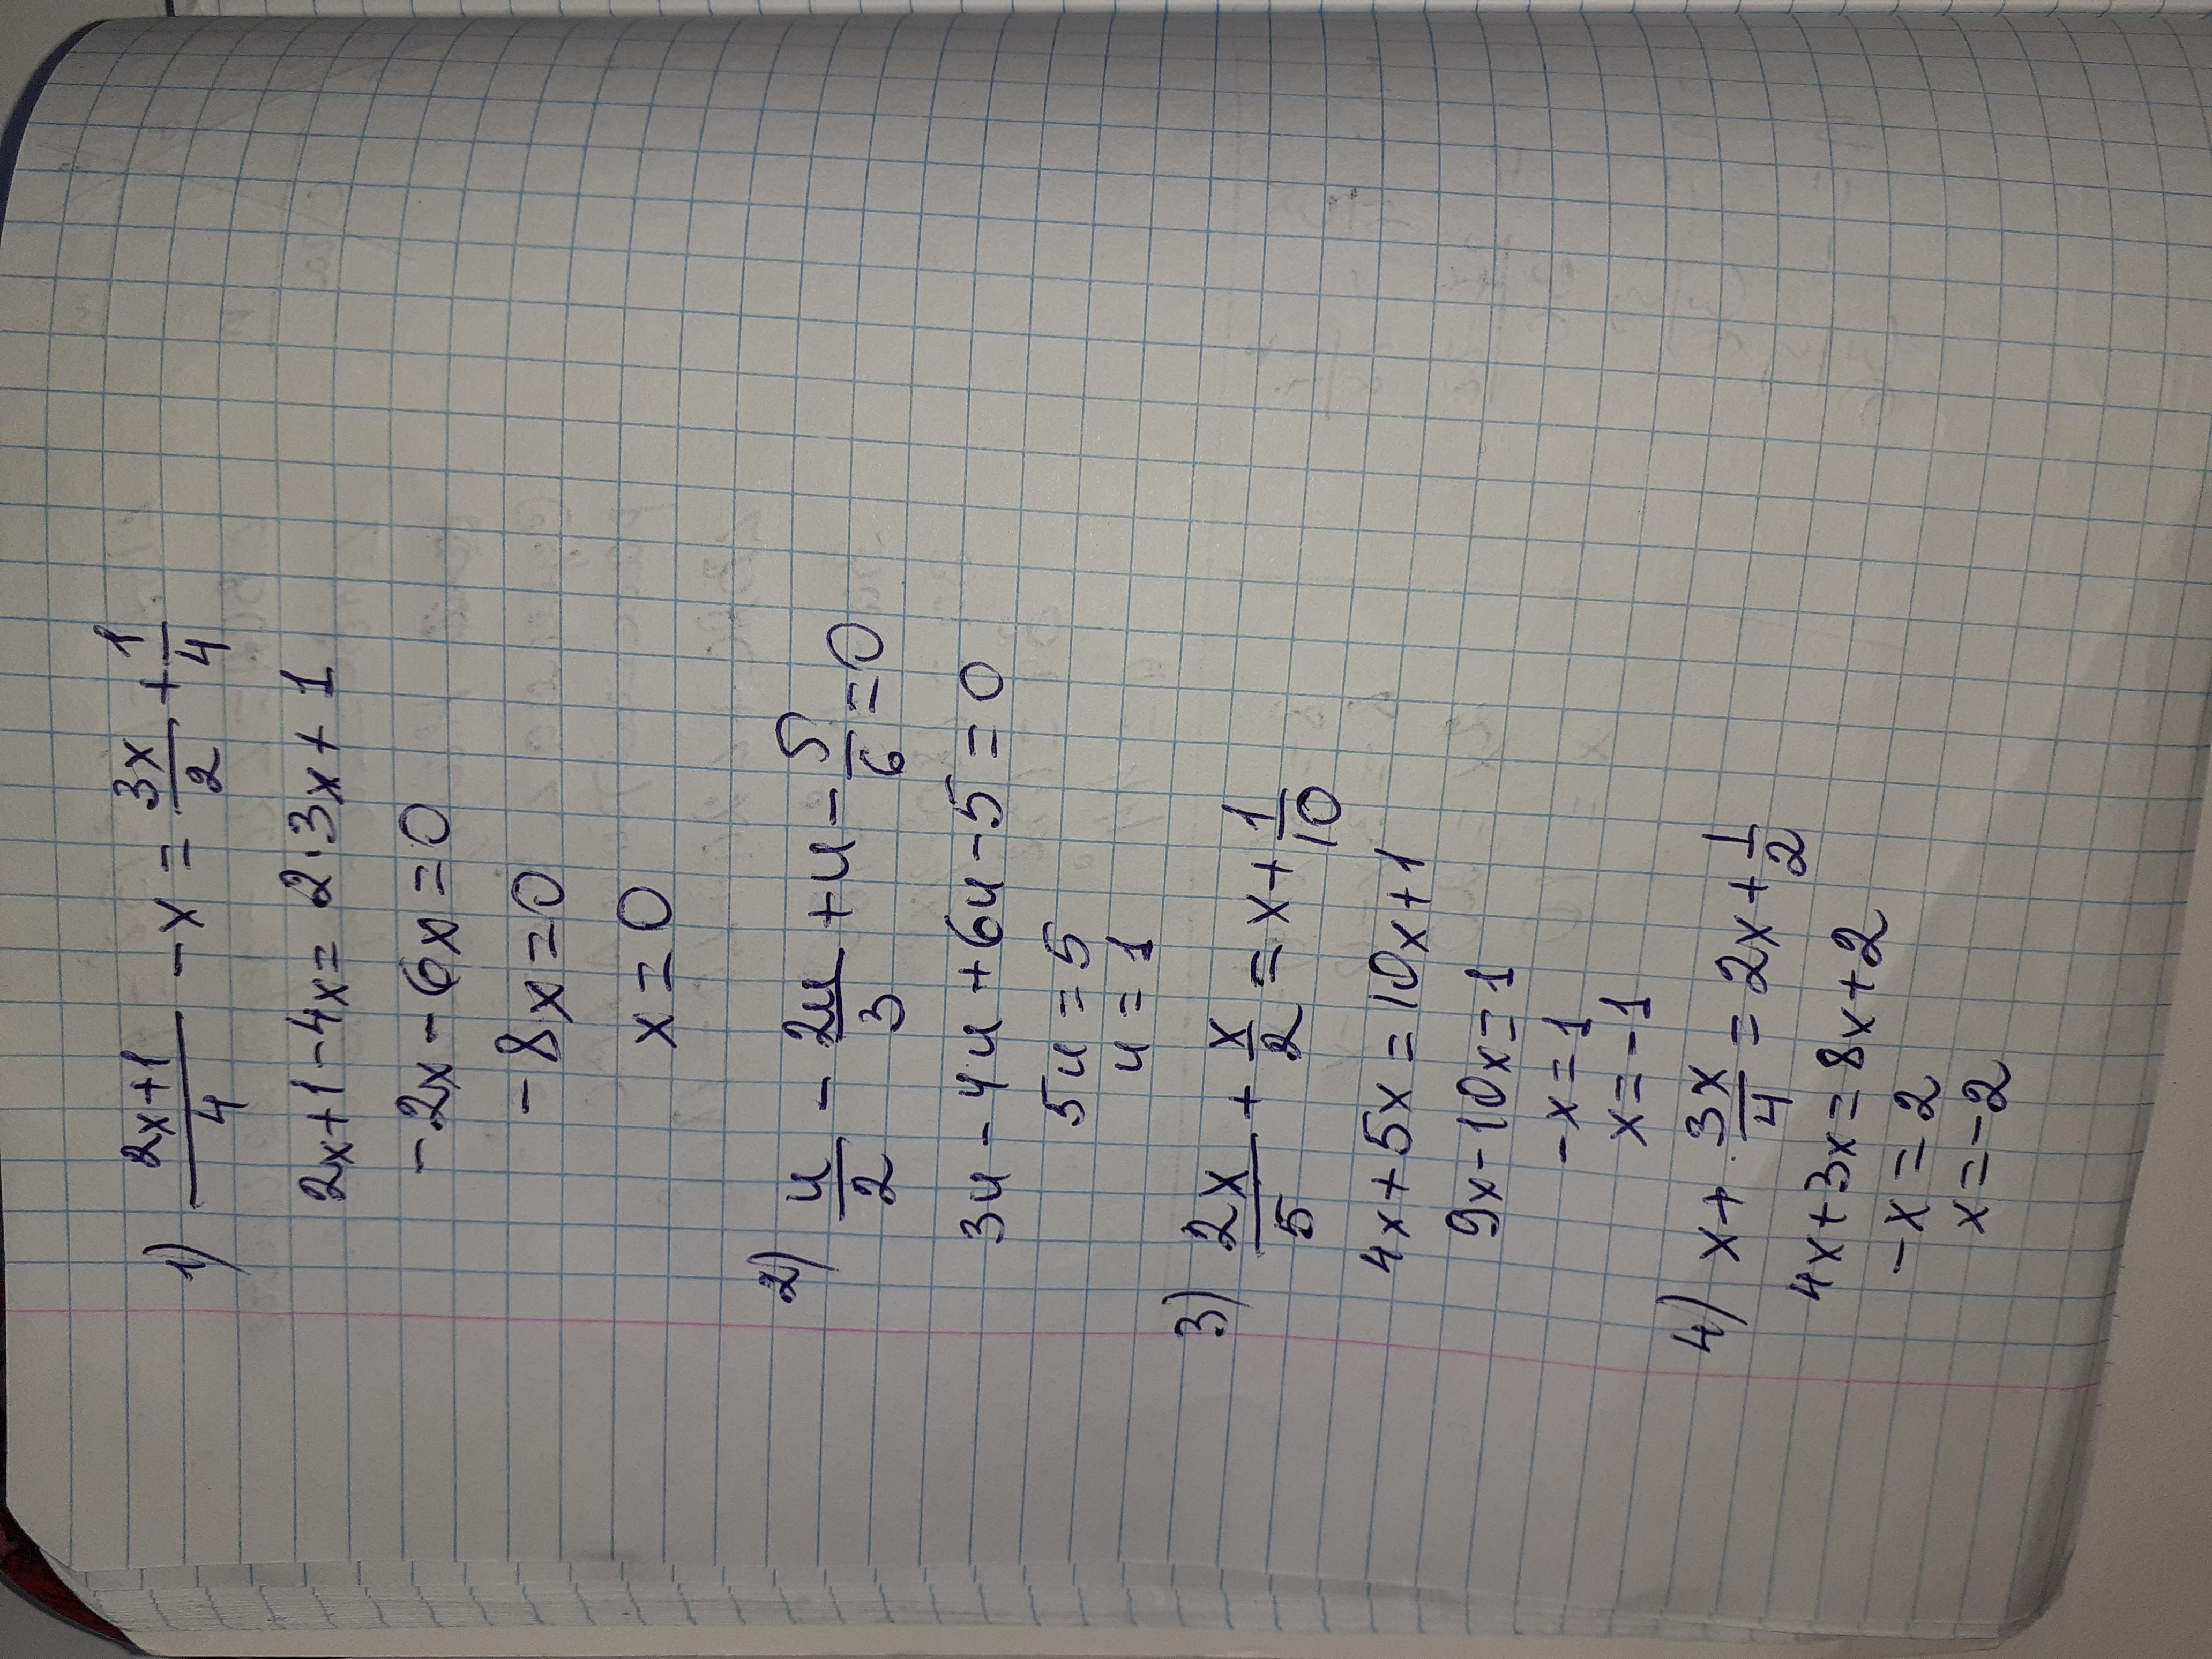 1) (2x+1)/4 - x = 3x/2 + 1/4
2x+1-4x = 2·3x+1
-2x-6x=0
-8x=0
x=0
2) u/2 - 2u/3 + u - 5/6 = 0
3u-4u+6u-5=0
5u=5
u=1
3) 2x/5 + x/2 = x + 1/10
4x+5x=10x+1
9x-10x=1
-x=1
x=-1
4) x + 3x/4 = 2x + 1/2
4x+3x=8x+2
-x=2
x=-2